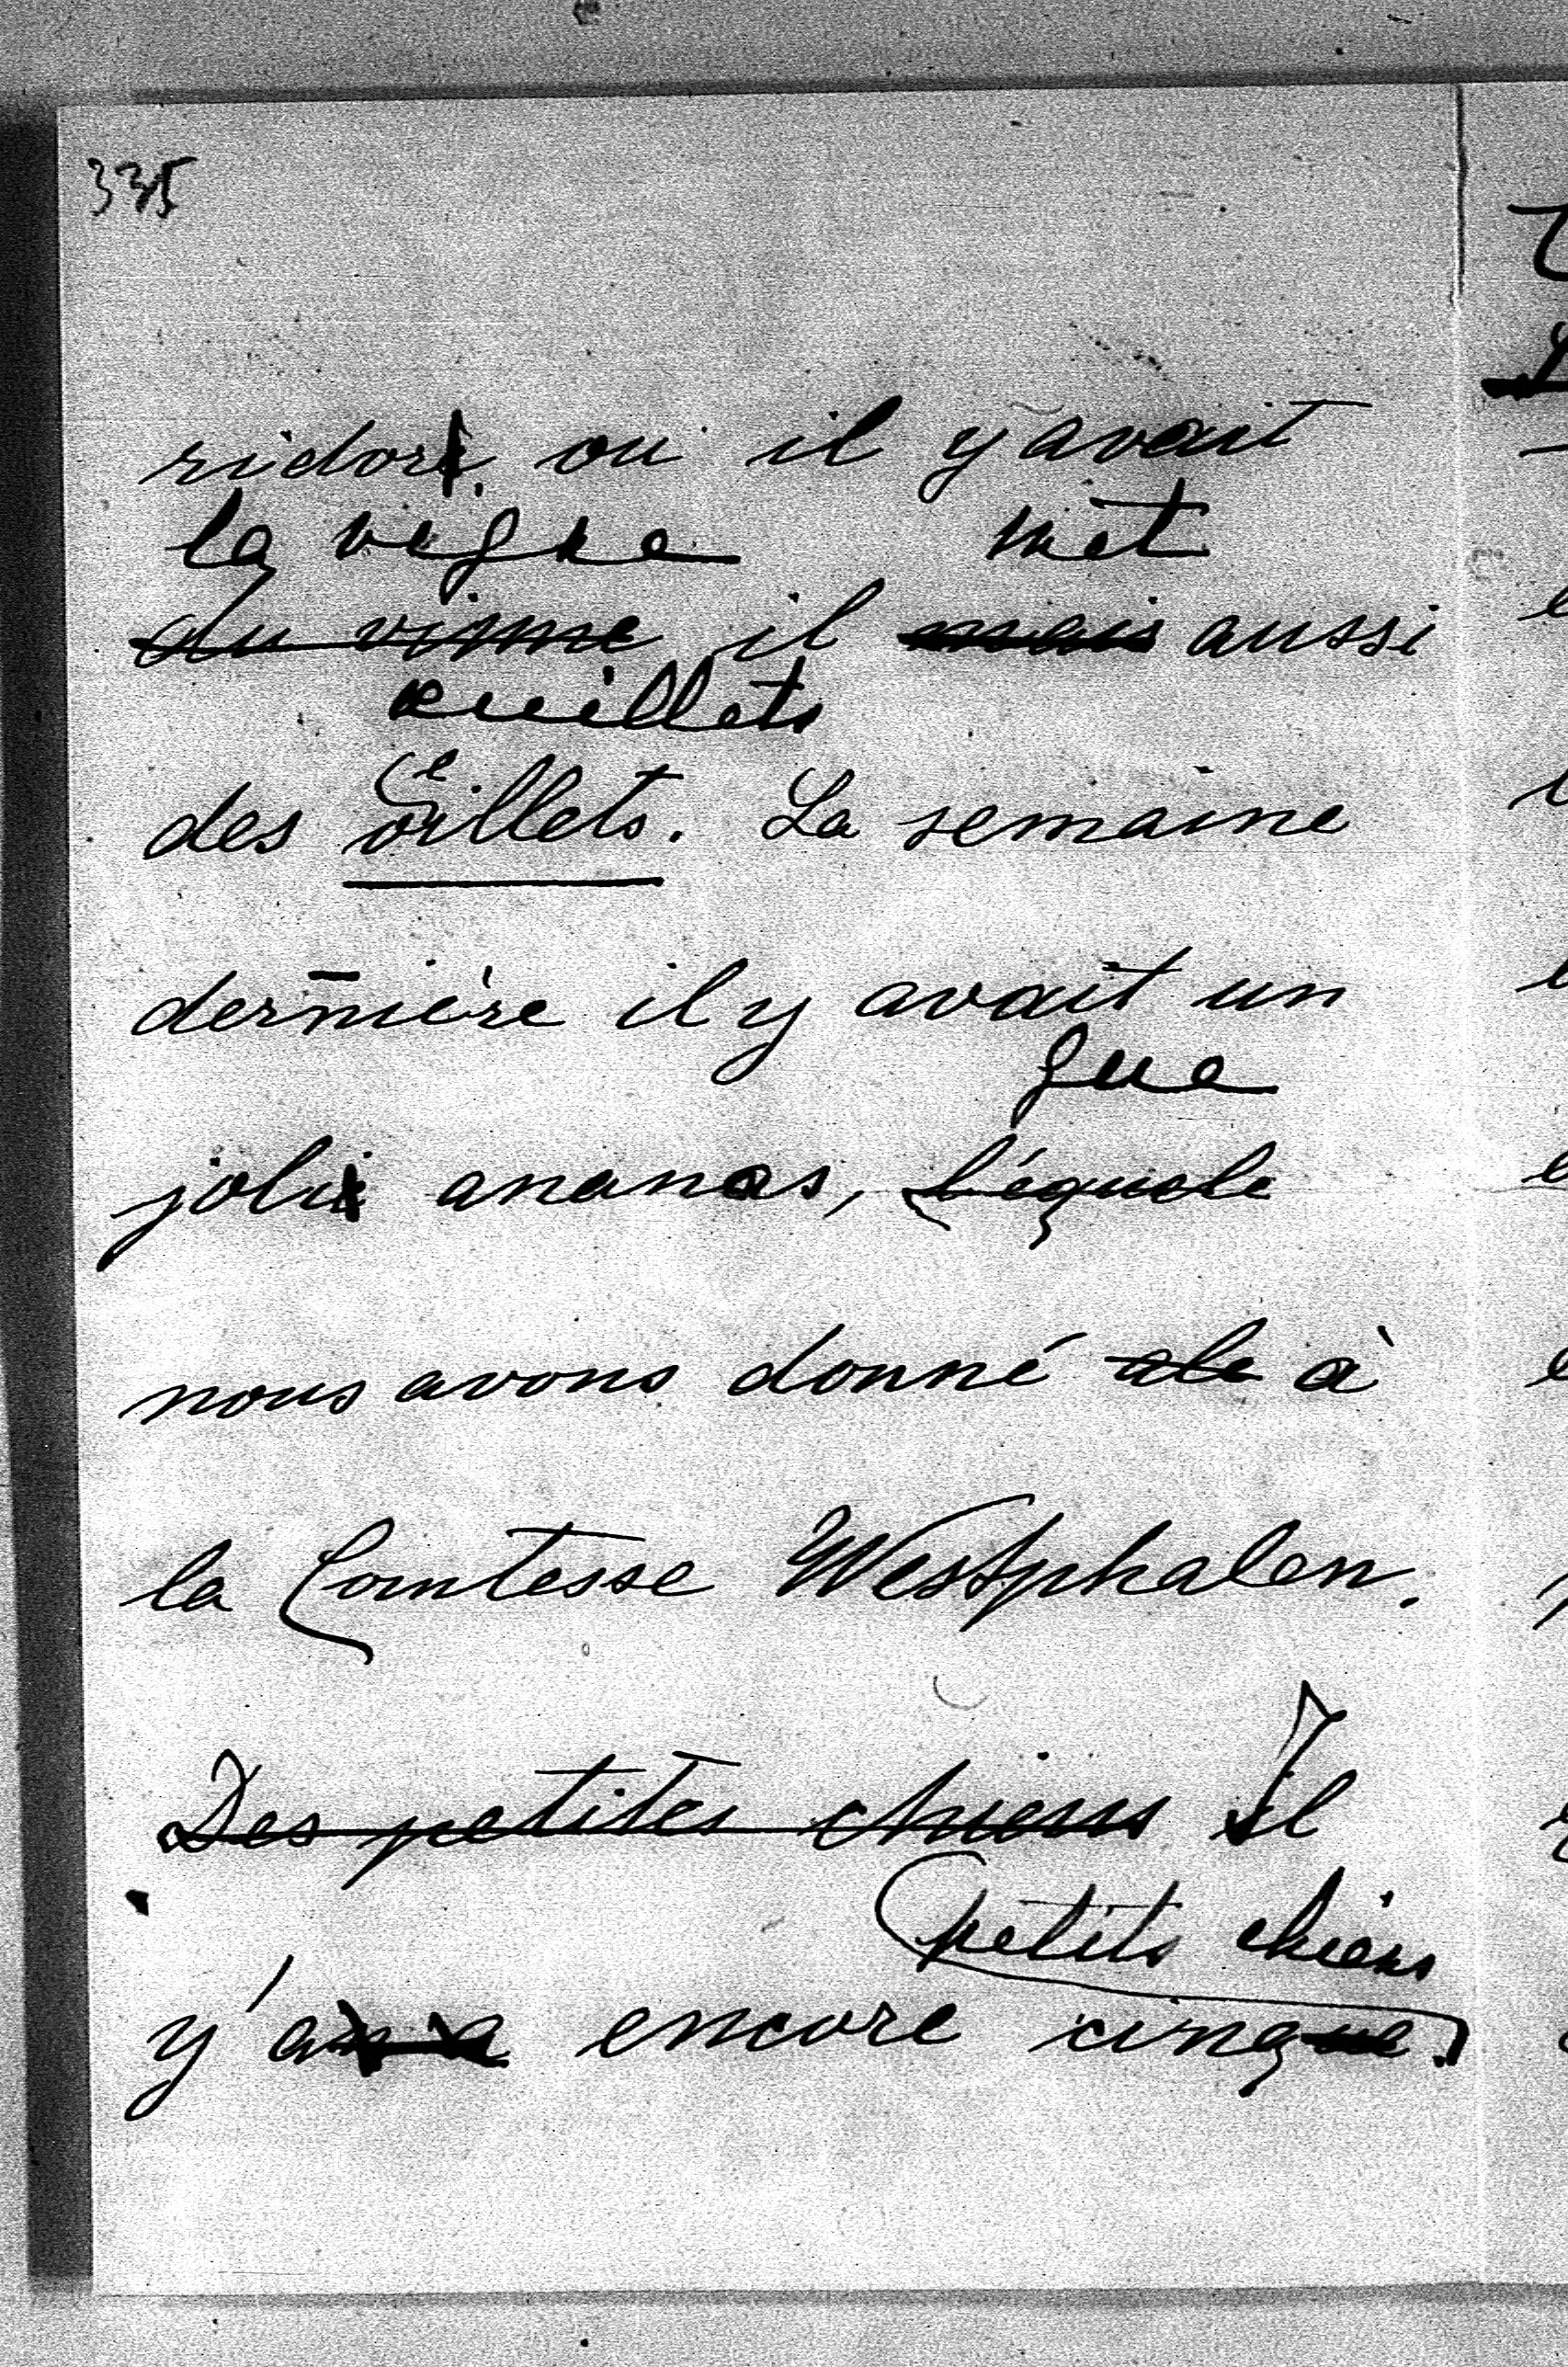 335
ridor, ou il y avait
la vigne met
du vinne il mais aussi
œuillets
des oeillets. La semaine
dernière il y avait un
que
joli ananas, léquele
nous avons donné ale à
la Comtesse Westphalen.
Des petites chiens Il
petits chiens
y'a encore cinque.